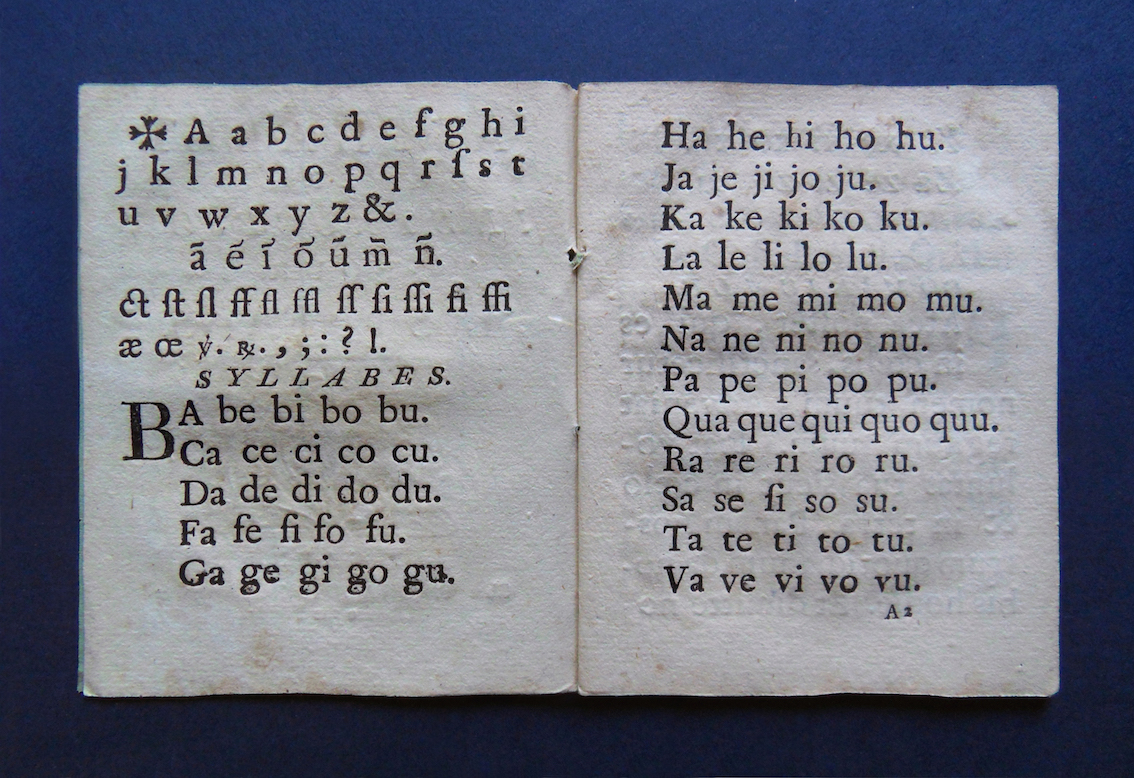 ✠ A a b c d e f g h i
j k l m n o p q r ſ s t
u v w x y z &.
ã ẽ ĩ õ ũ m̃ ñ.
ct ſt ſl ff fl ffl ſſ ſi ſſi fi ffi
æ œ ꝟ. ꝶ. , ; : ? !.
SYLLABES.
BA be bi bo bu.
Ca ce ci co cu.
Da de di do du.
Fa fe fi fo fu.
Ga ge gi go gu.
Ha he hi ho hu.
Ja je ji jo ju.
Ka ke ki ko ku.
La le li lo lu.
Ma me mi mo mu.
Na ne ni no nu.
Pa pe pi po pu.
Qua que qui quo quu.
Ra re ri ro ru.
Sa se ſi so su.
Ta te ti to tu.
Va ve vi vo vu.
A2